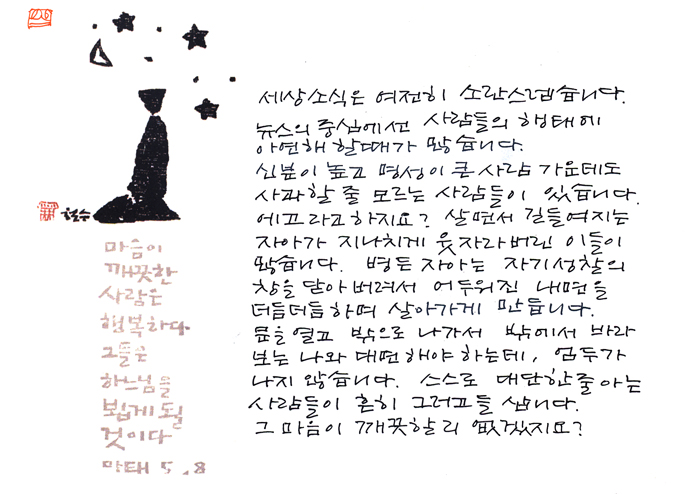 철수
마음이
깨끗한
사람은
행복하다
그들은
하느님을
뵙게 될
것이다
마태 5.8
세상소식은 여전히 소란스럽습니다.
뉴스의 중심에선 사람들의 행태에
아연해 할때가 많습니다.
신분이 높고 명성이 큰 사람 가운데도
사과할 줄 모르는 사람들이 있습니다.
에고라고 하지요? 살면서 길들여지는
자아가 지나치게 웃자라버린 이들이
많습니다. 병든 자아는 자기성찰의
창을 닫아 버려서 어두워진 내면을
더듬더듬하며 살아가게 만듭니다.
문을 열고 밖으로 나가서 밖에서 바라
보는 나와 대면해야 하는데, 엄두가
나지 않습니다. 스스로 대단한줄 아는
사람들이 흔히 그러고들 삽니다.
그 마음이 깨끗할 리 없겠지요?